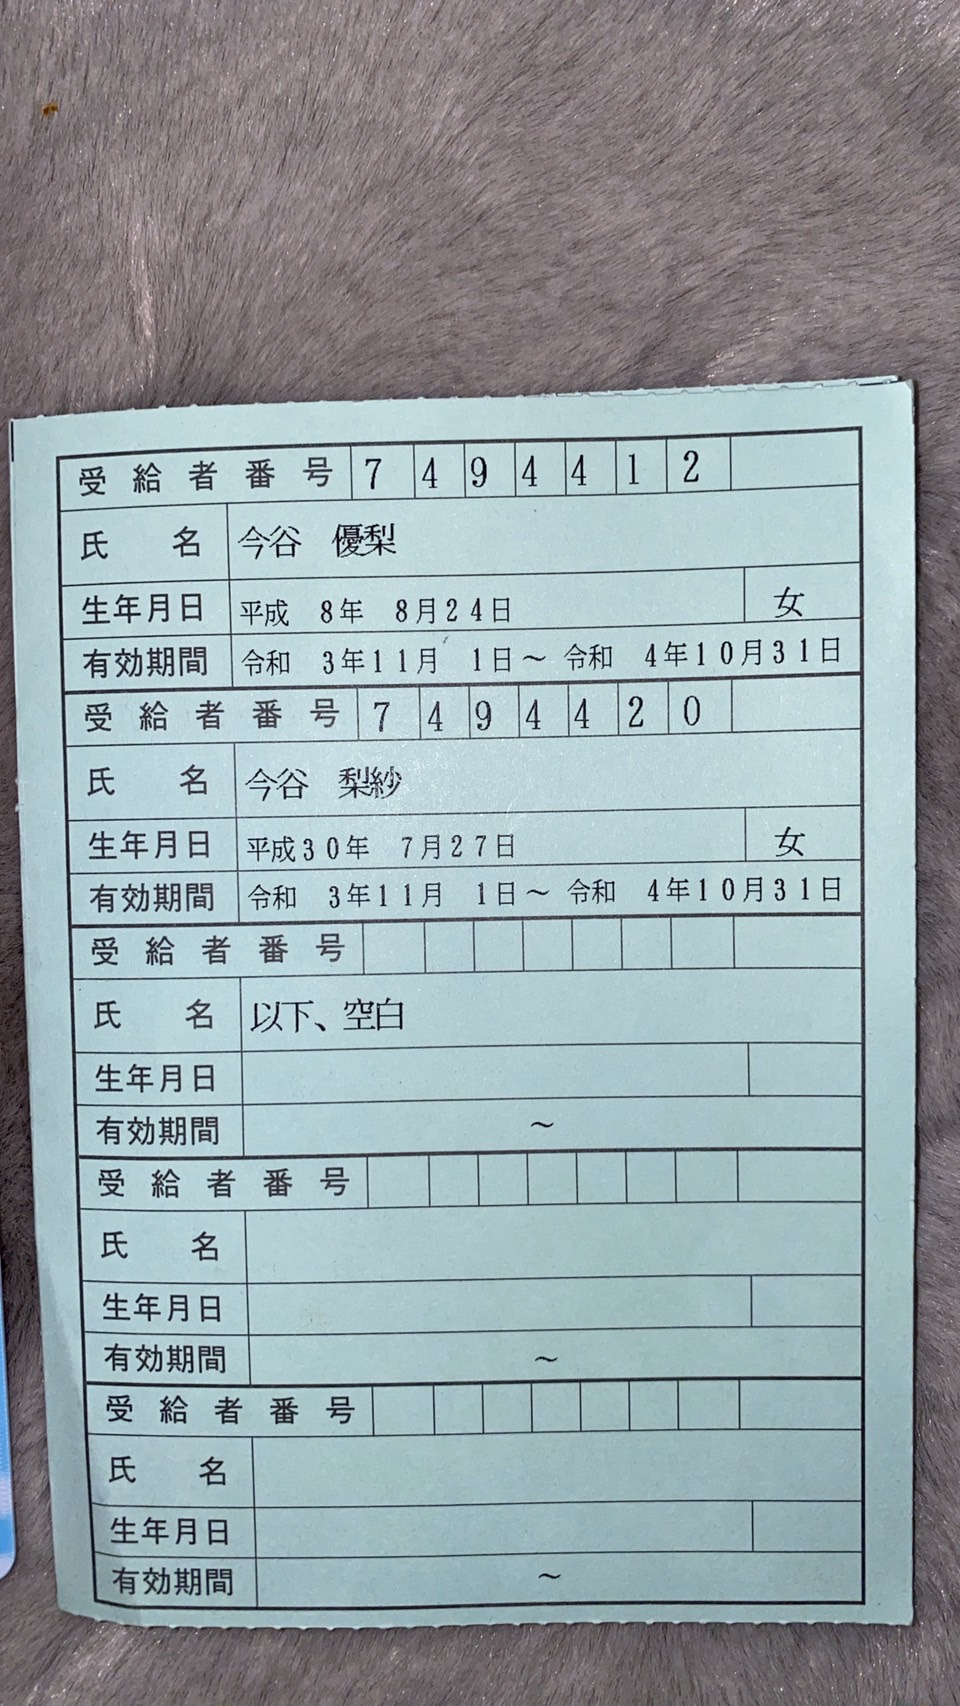 受給者番号 7 4 9 4 4 1 2
氏名 今谷 優梨
生年月日 平成 8年 8月24日 女
有効期間 令和 3年11月 1日～ 令和 4年10月31日
受給者番号 7 4 9 4 4 2 0
氏名 今谷 梨紗
生年月日 平成30年 7月27日 女
有効期間 令和 3年11月 1日～ 令和 4年10月31日
受給者番号
氏名 以下、空白
生年月日
有効期間 ～
受給者番号
氏名
生年月日
有効期間 ～
受給者番号
氏名
生年月日
有効期間 ～